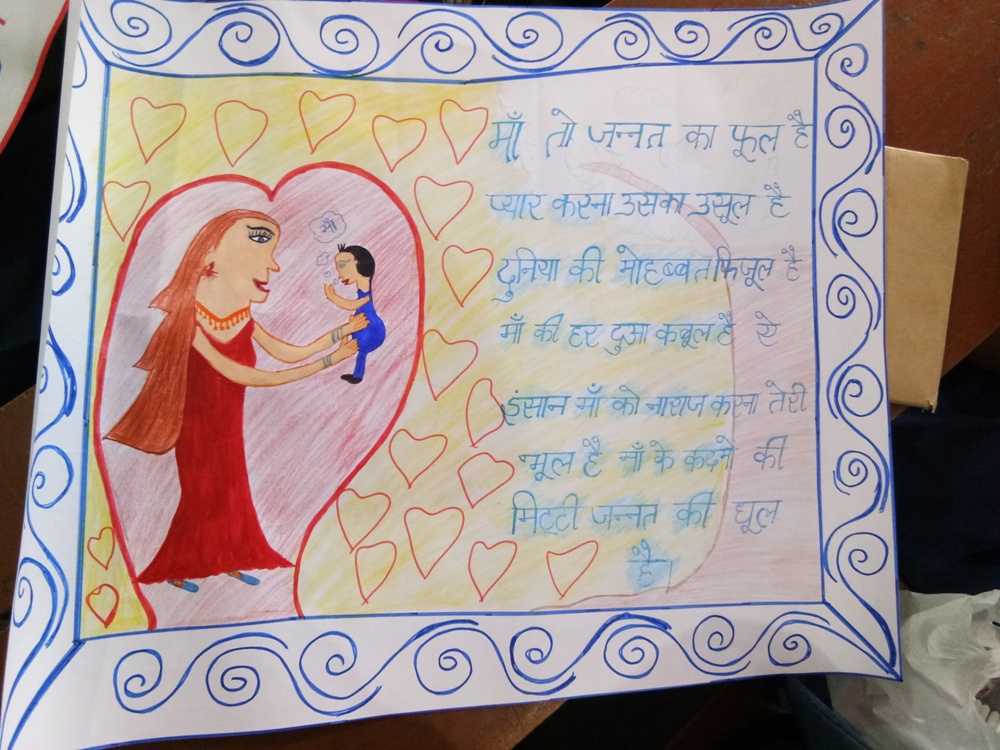 माँ
माँ तो जन्नत का फूल है
प्यार करना उसका उसूल है
दुनिया की मोहब्बत फिजूल है
माँ की हर दुआ कबूल है ऐ
इंसान माँ को नाराज करना तेरी
भूल है माँ के कदमो की
मिट्टी जन्नत की धूल
है।